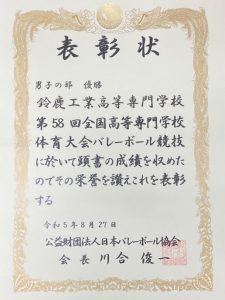 表彰状
男子の部 優勝
鈴鹿工業高等専門学校
第58回全国高等専門学校
体育大会バレーボール競技
に於いて頭書の成績を収めた
のでその栄誉を讃えこれを表彰
する
令和5年8月27日
公益財団法人日本バレーボール協会
会長 川合俊一